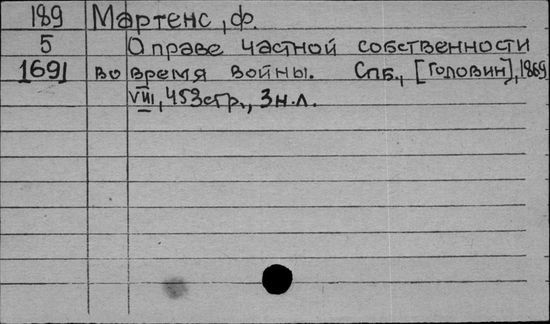 189 Мартенс, Ф.
5 О праве частной собственности
1691 во время войны. Спб., [Головин], 1869
VIII, 453 стр., 3 н.л.